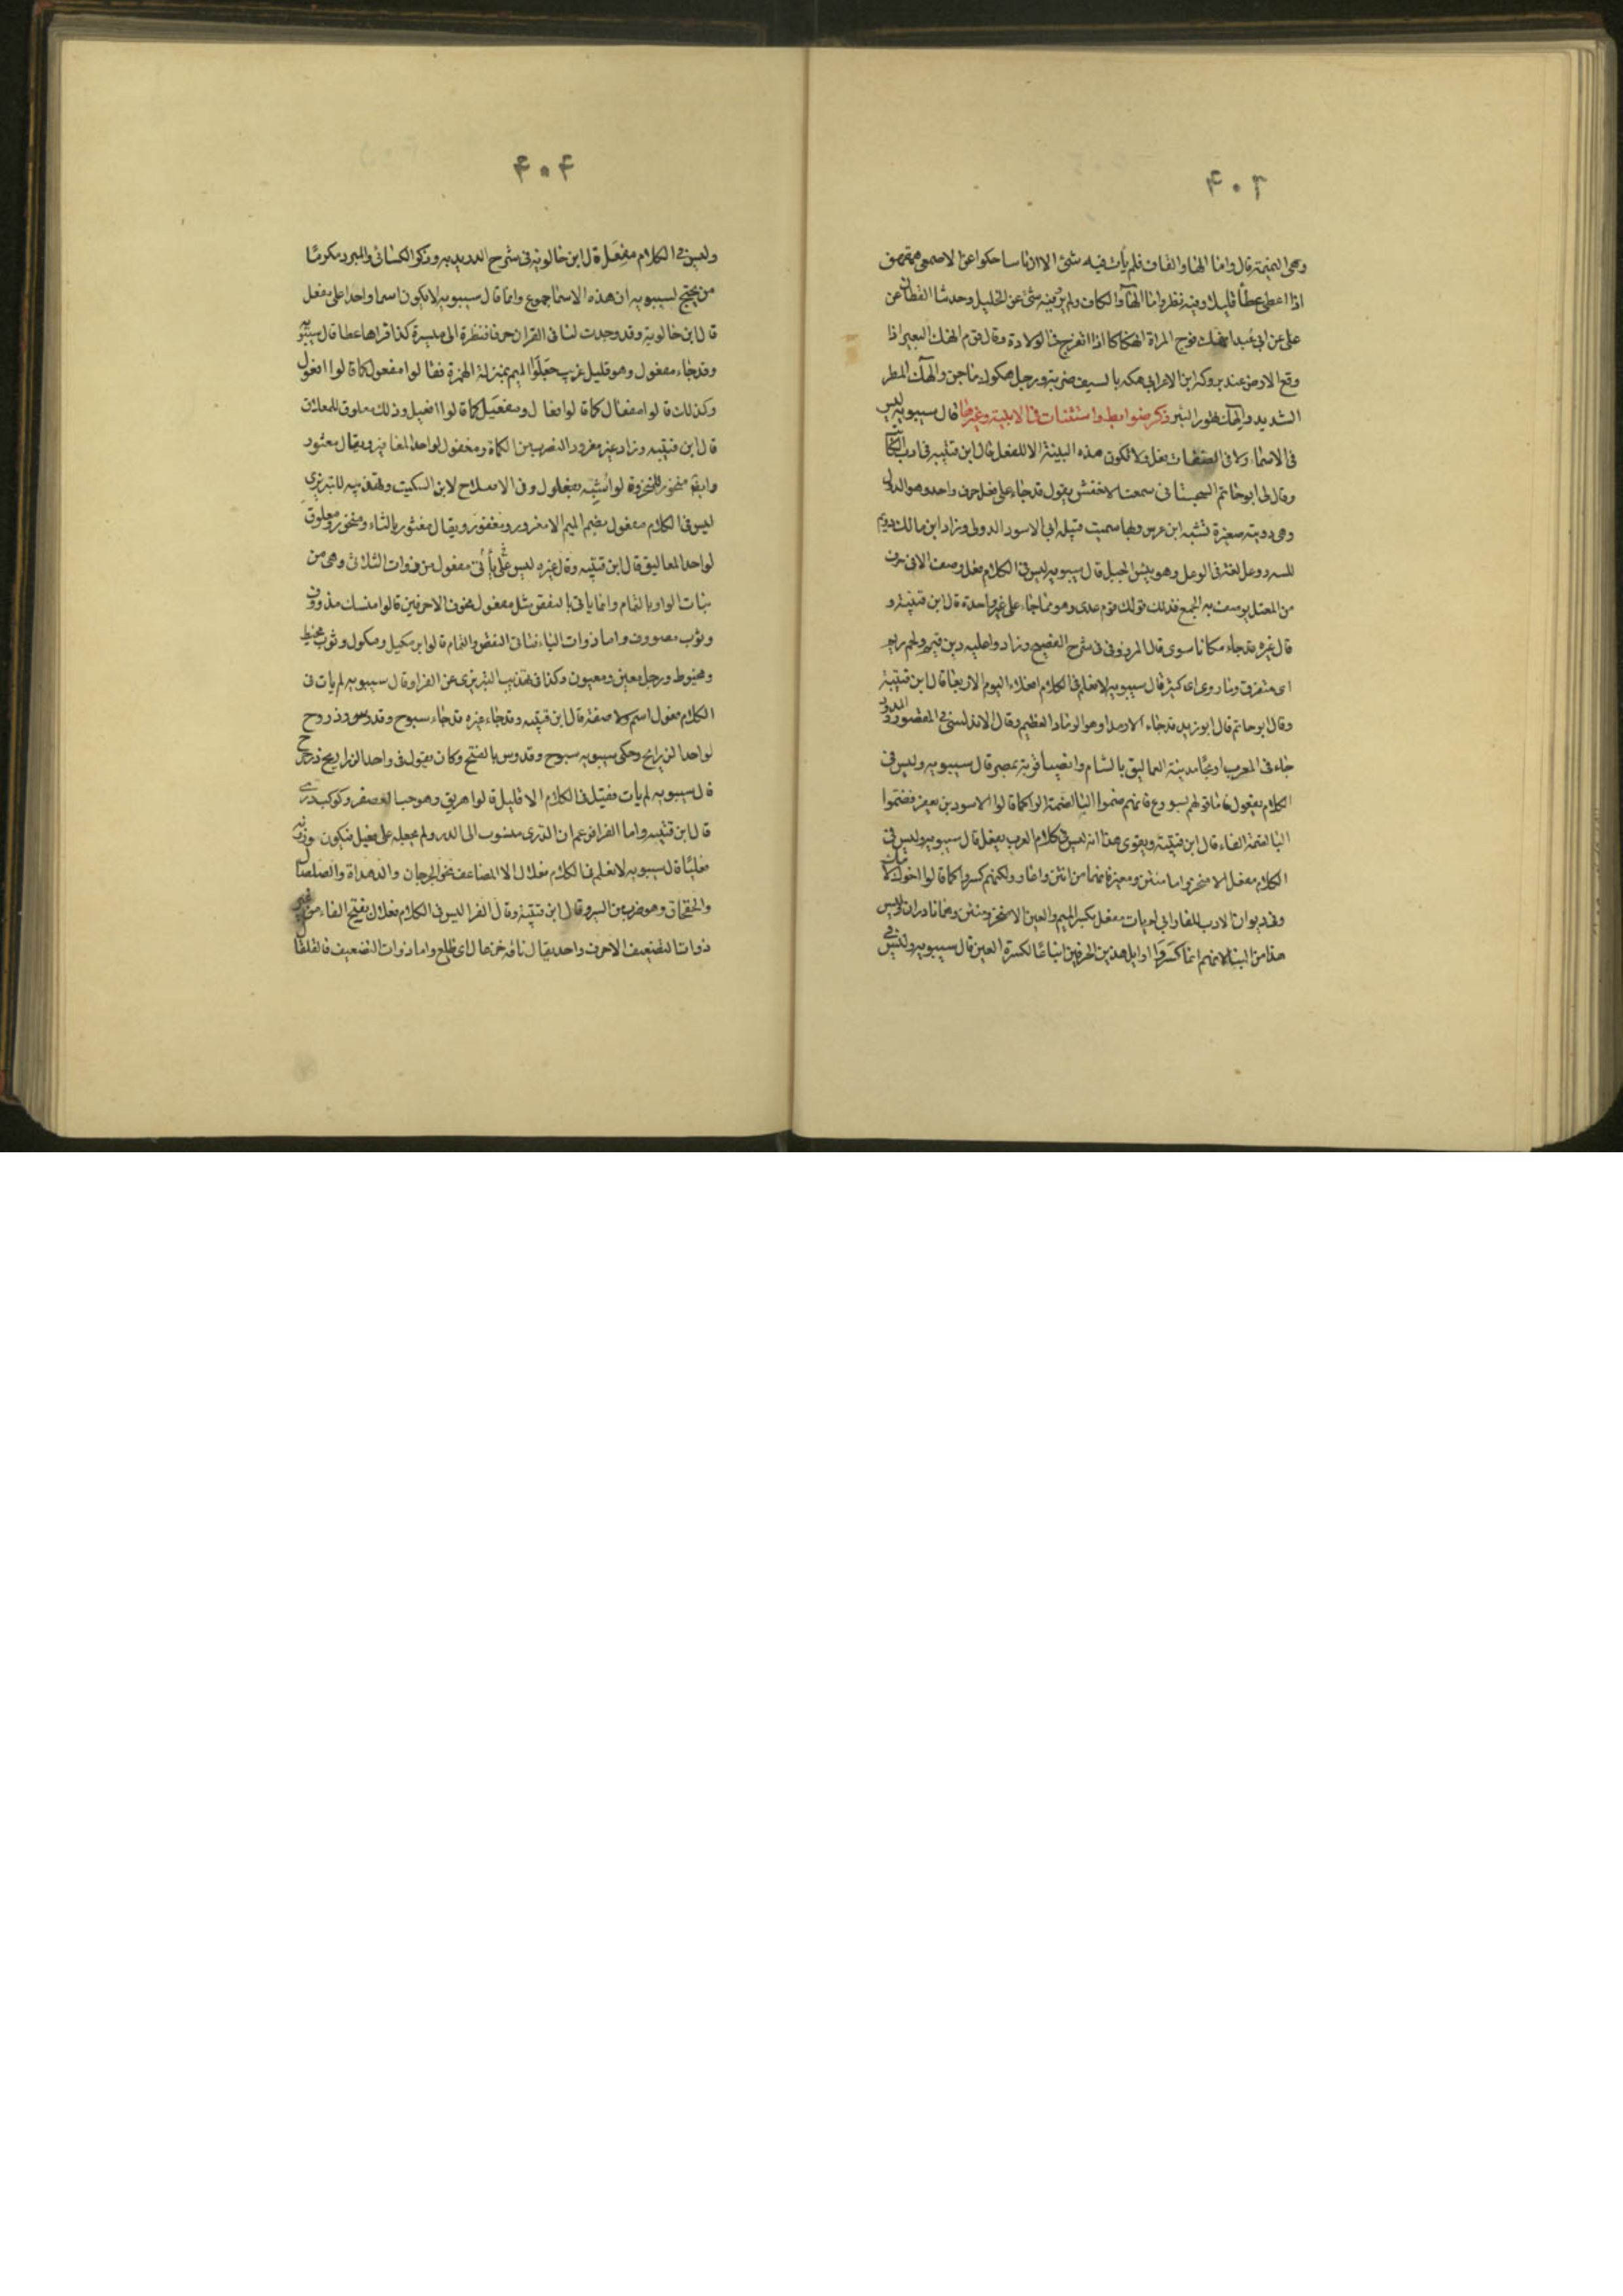 ۴۰۳
وهى اليمنية قال واما الها والقاف فلم يأت فيه شئ الا ان ناسا حكوا عن الاصمعى
اذا اعطى عطأ قليلا وفيه نظر واما الهآ والكاف ولم يرو فيه شئ عن الخليل وحدثنا القطان عن
على عن ابى عبيد انهك فرج المراة انهكاكا اذا انفرج فى الولادة وقال قوم انهك البعير اذا
وقع الارض عند بروكه ابن الاعرابى هكه بالسيف ضربه ورجل هكوك ماجن والهك المطر
الشديد والهك تهور البئر ذكر ضوابط واستثنات فى الابنية وغيرها قال سيبويه ليس
فى الاسماء ولا فى الصفات فعل ولا تكون هذه البنية الا للفعل قال ابن قتيبه فى ادب الكاتب
وقال لى ابو حاتم السجستانى سمعت الاخفش يقول قد جاء على فعل حرف واحد وهو الدئل
وهى دويبة صغيرة تشبه ابن عرس وبها سميت قبيله ابى الاسود الدولى وزاد ابن مالك رئم
للسه ووعل لغة فى الوعل وهو تيس الجبل قال سيبويه ليس فى الكلام فعل وصف الا فى حرف
من المعتل يوصف به الجمع فذلك قولك قوم عدى وهو مما جاء على غير واحدة قال ابن قتيبة و
قال غيره قد جاء مكانا سوى قال المرزوقى فى شرح الفصيح وزاد واعليه دين قيم ولحم زيم
اى متفرق وماء روى اى كثير قال سيبويه لا نعلم فى الكلام افعلاء اليوم الاربعا قال ابن قتيبة
وقال ابو حاتم قال ابو زيد قد جاء الارمدا وهو الرماد العظيم وقال الاندلسى فى المقصور والممدود
جاء فى المعرب اريحا مدينة العماليق بالشام وايضا قرية بمصر قال سيبويه وليس فى
الكلام يفعول فاما قولهم يسروع فانهم ضموا اليا لضمة الرا كما قالوا الاسود بن يعفر فضموا
اليا لضمة الفاء قال ابن قتيبة ويقوى هذا انه ليس فى كلام العرب يفعل قال سيبويه وليس فى
الكلام مفعل الا منخر واما منتن ومعيرة فانهما من انتن واغار ولكنهم كسروا كما قالوا اخوك لامك
وفى ديوان الادب للفارابى لم يات مفعل بكسر الميم والعين الا منخر ومنتن وهما نادران وليس
هذا من البنا لانهم انما كسروا اوايل هذين الحرفين اتباعا لكسرة العين قال سيبويه وليس فى
۴۰۴
وليس فى الكلام مفعل قال ابن خالويه فى شرح الدريديه وذكر الكسائى والمبرد مكرما
من يحتج لسيبويه ان هذه الاسما جموع وانما قال سيبويه لا يكون اسما واحدا على مفعل
قال ابن خالويه وقد وجدت لنا فى القران حرفا فنظرة الى ميسرة كذا قراها عطا قال سيبويه
وقد جاء مفعول وهو قليل غريب جعلوا الميم بمنزلة الهمزة فقالوا مفعول كما قالوا افعول
وكذلك قالوا مفعال كما قالوا افعال ومفعيل كما قالوا افعيل وذلك معلوق للمعلاق
قال ابن قتيبه وزاد غيره مغرود لضرب من الكماة ومغفور لواحد المغافير ويقال مغثور
وايضا منخور للمنخر وقالوا شبه بفعلول وفى الاصلاح لابن السكيت وتهذيبه للتبريزى
ليس فى الكلام مفعول بضم الميم الا مغرود ومغفور ويقال مغثور بالثاء ومنخور ومعلوق
لواحد المعاليق قال ابن قتيبه وقال غيره ليس يأتى مفعول من ذوات الثلاث وهى من
بنات الواو بالتمام وانما ياتى بالنقص مثل مقول مخوف الا حرفين قالوا مسك مدووف
وثوب مصوون واما ذوات الياء فتاتى بالنقص والتمام قالوا بر مكيل ومكيول وثوب مخيط
ومخيوط ورجل معين ومعيون وكذا فى تهذيب التبريزى عن الفرا وقال سيبويه لم يات فى
الكلام مفعول اسم ولا صفة قال ابن قتيبه وقد جاء غيره قد جاء سبوح وقدوس وذروح
لواحد الذرايح وحكى سيبويه سبوح وقدوس بالفتح وكان يقول فى واحد الذراريح ذرحرح
قال سيبويه لم يات فعيل فى الكلام الا قليلا قالوا مريق وهو حب العصفر وكوكب درى
قال ابن قتيبه واما الفرا فزعم ان الدرى منسوب الى الدر ولم يجعله على فعيل فيكون وزنه
فعليا قال سيبويه لا نعلم فى الكلام فعلال الا المضاعف نحو الجرجار والدهداة والصلصال
والحقحاق وهو ضرب من السير وقال ابن قتيبة وقال الفرا ليس فى الكلام فعلال بفتح الفاء من غير
ذوات التضعيف الا حرف واحد يقال ناقة خزعال اى ظلع واما ذوات التضعيف فالقلقال